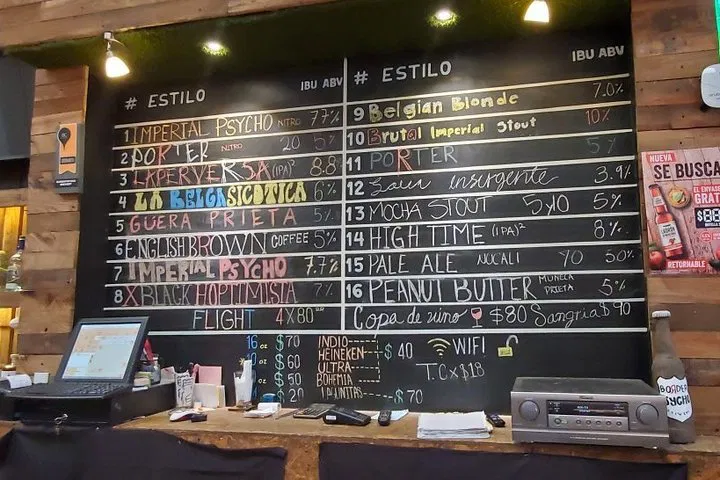 # ESTILO IBU ABV
1 IMPERIAL PSYCHO NITRO 7.7%
2 PORTER NITRO 20 5%
3 LAPERVERSA (IPA)² 8.8
4 LA BELGASICOTICA 6%
5 GUERA PRIETA 5%
6 ENGLISH BROWN COFFEE 5%
7 IMPERIAL PSYCHO 7.7%
8 XBLACK HOPTIMISTA 7%
FLIGHT 4X80
# ESTILO IBU ABV
9 Belgian Blonde 7.0%
10 Brutal Imperial Stout 10%
11 PORTER 5%
12 Sour insurgente 3.9%
13 MOCHA STOUT 5%
14 HIGH TIME (IPA)² 8%
15 PALE ALE
16 PEANUT BUTTER MUÑECA PRIETA 5%
Copa de vino $80 Sangria $90
16 oz $70
oz $60
oz $50
$20
INDIO
HEINEKEN
ULTRA
BOHEMIA
$40
LAGUNITAS $70
WIFI
T.C x $18
NUEVA
SE BUSCA
EL ENVASE
GRATIS
RETORNABLE
BORDER
PSYCHO